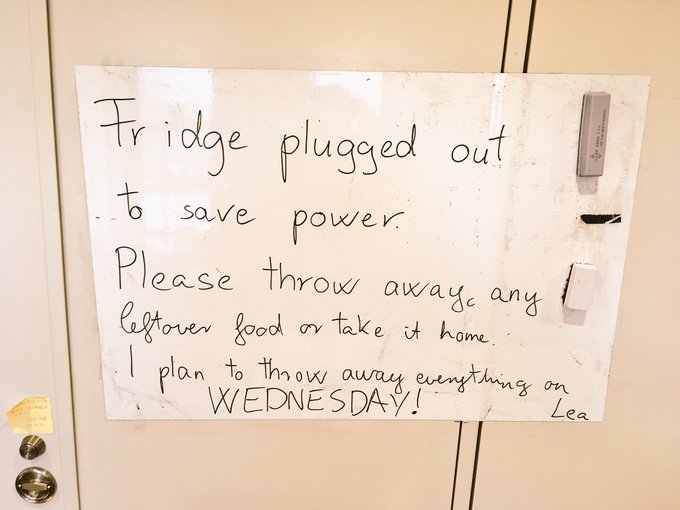 Fridge plugged out
to save power.
Please throw away, any
leftover food or take it home.
I plan to throw away everything on
WEDNESDAY!
Lea